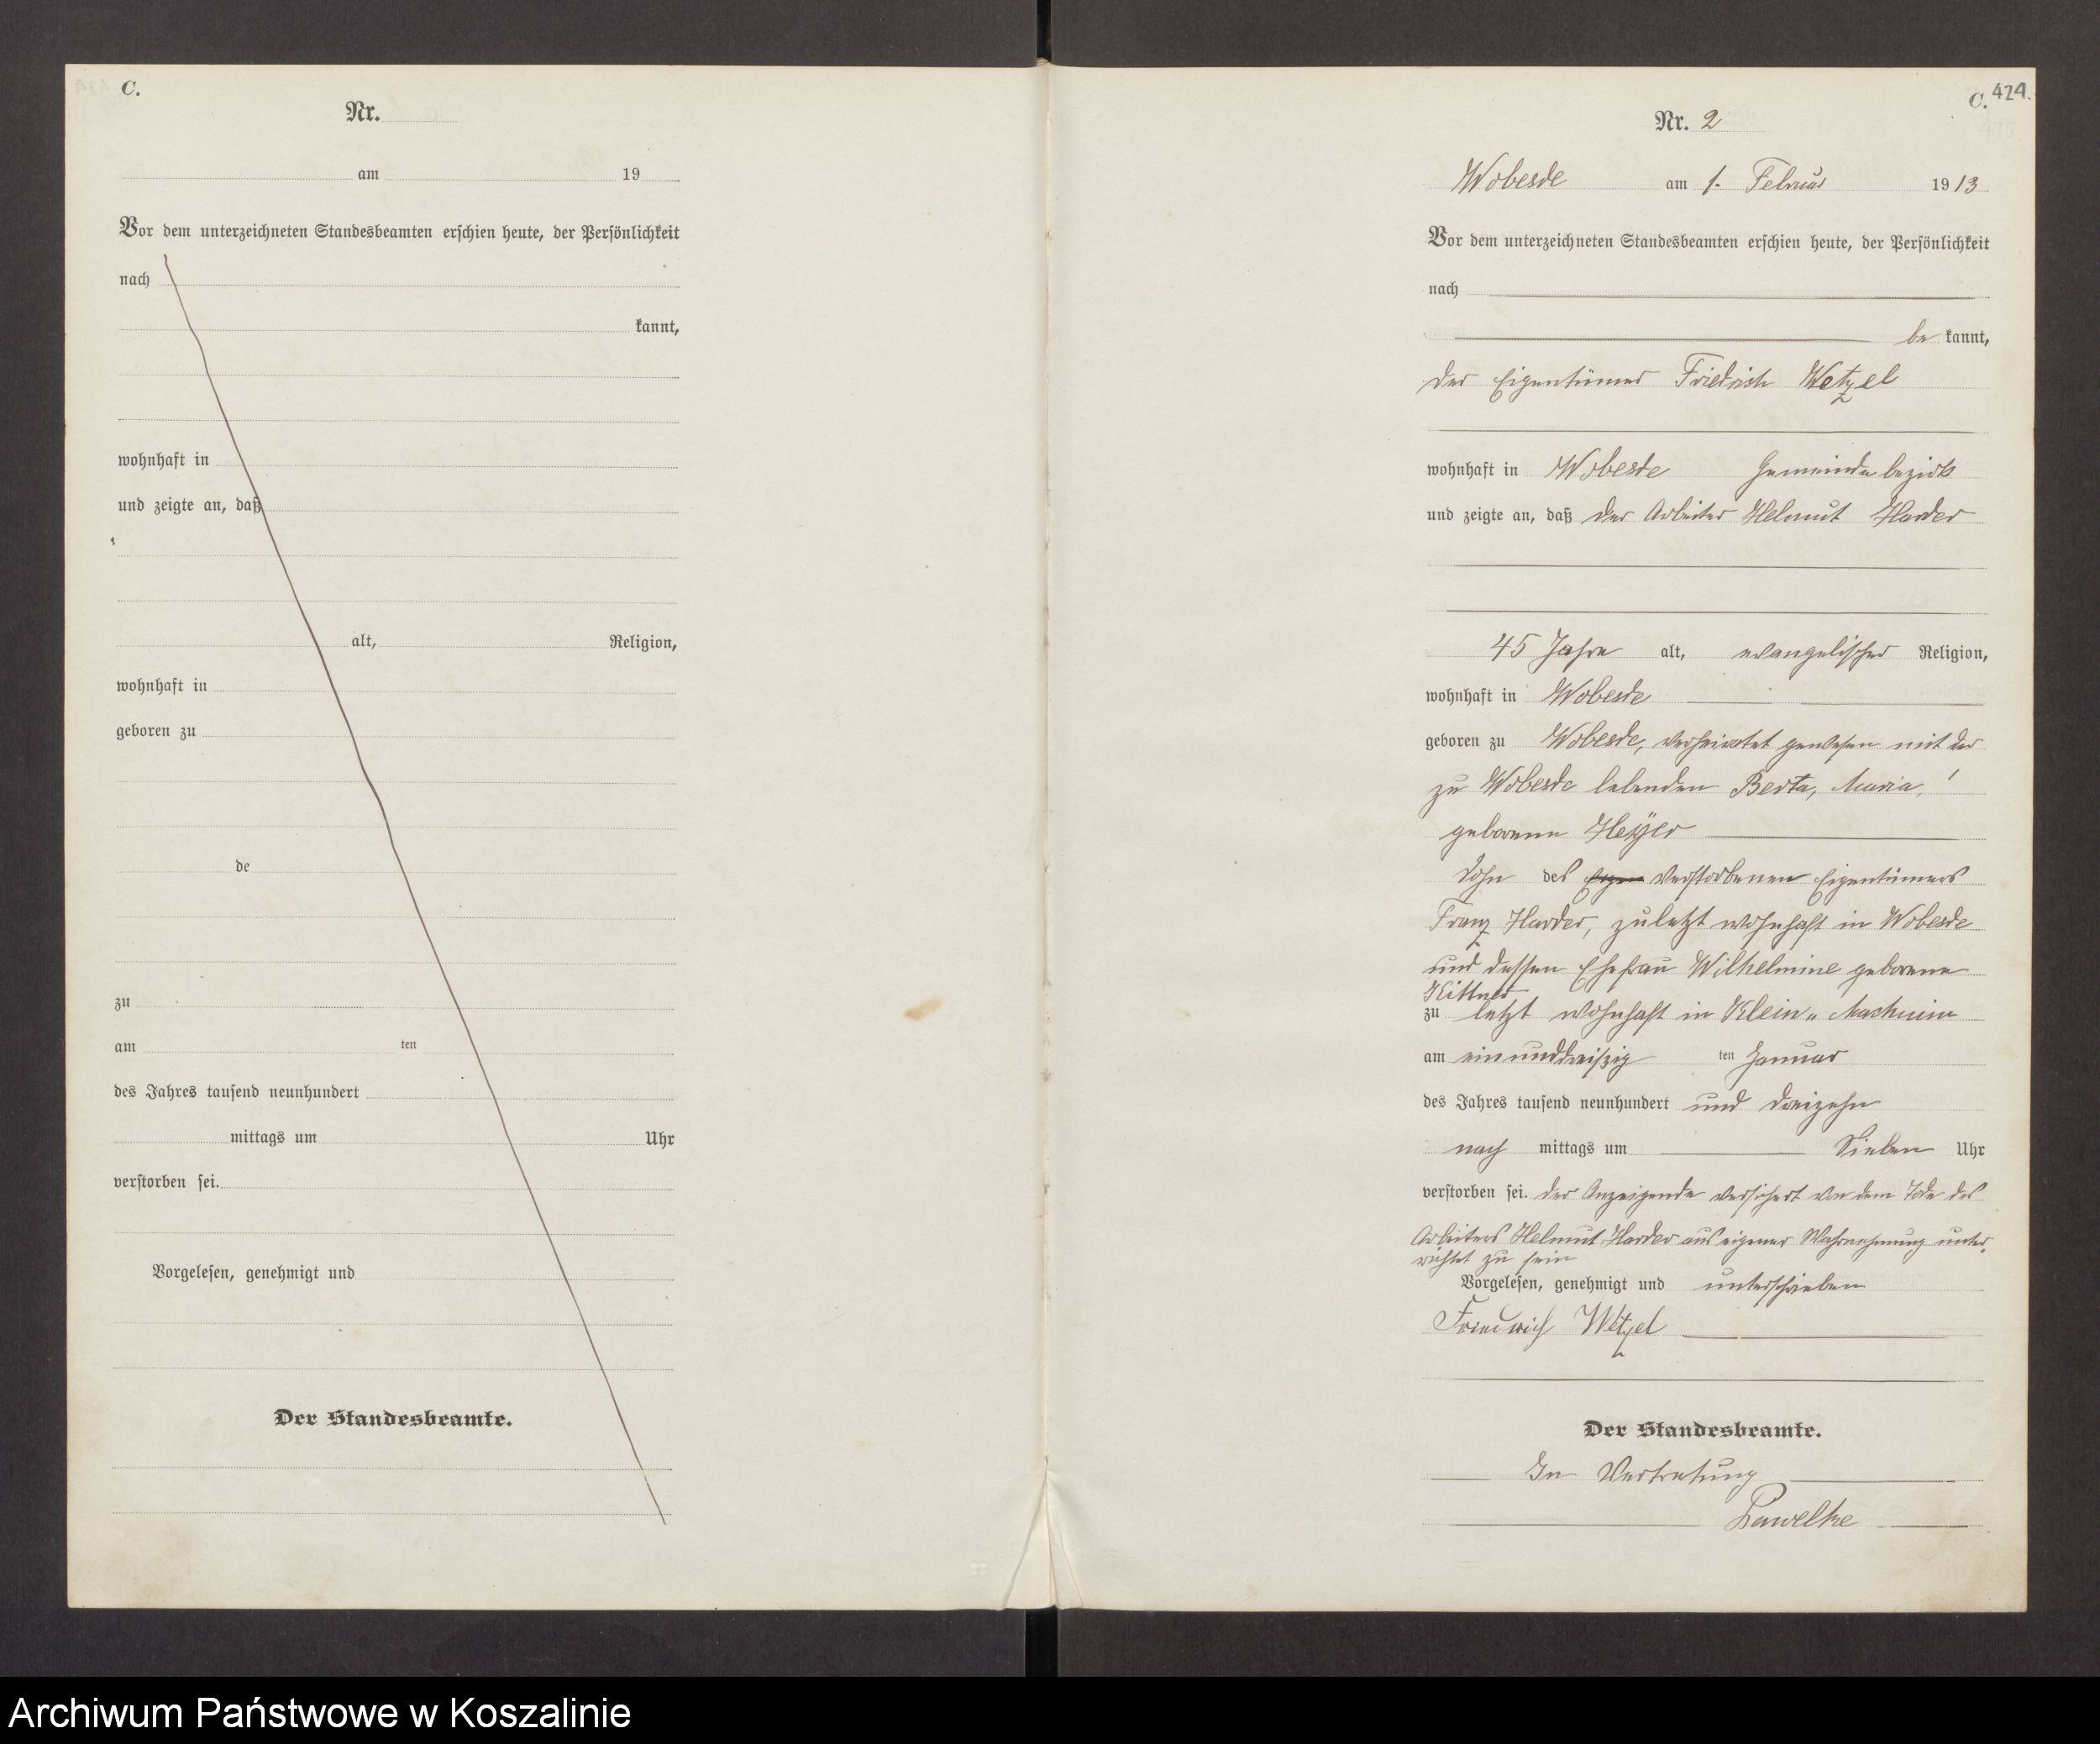 C.
Nr.
am 19
Vor dem unterzeichneten Standesbeamten erschien heute, der Persönlichkeit
nach
kannt,
wohnhaft in
und zeigte an, daß
alt, Religion,
wohnhaft in
geboren zu
de
zu
am ten
des Jahres tausend neunhundert
mittags um Uhr
verstorben sei.
Vorgelesen, genehmigt und
Der Standesbeamte.
C. 424.
Nr. 2
Wobesde am 1. Februar 1913
Vor dem unterzeichneten Standesbeamten erschien heute, der Persönlichkeit
nach
be kannt,
der Eigentümer Friedrich Wetzel
wohnhaft in Wobesde Gemeindebezirk
und zeigte an, daß der Arbeiter Helmut Harder
45 Jahre alt, evangelischer Religion,
wohnhaft in Wobesde
geboren zu Wobesde, verheiratet gewesen mit der
zu Wobesde lebenden Berta, Maria,
geborene Heyer
Sohn des Eigen verstorbenen Eigentümers
Franz Harder, zuletzt wohnhaft in Wobesde
und dessen Ehefrau Wilhelmine geborene
Kittner
zu letzt wohnhaft in Klein-
am einunddreißig ten Januar
des Jahres tausend neunhundert und dreizehn
nach mittags um Sieben Uhr
verstorben sei. Der Anzeigende versichert von dem Tode des
Arbeiters Helmut Harder aus eigener Wahrnehmung unter-
richtet zu sein
Vorgelesen, genehmigt und unterschrieben
Friedrich Wetzel
Der Standesbeamte.
In Vertretung
Pawelke
Archiwum Państwowe w Koszalinie